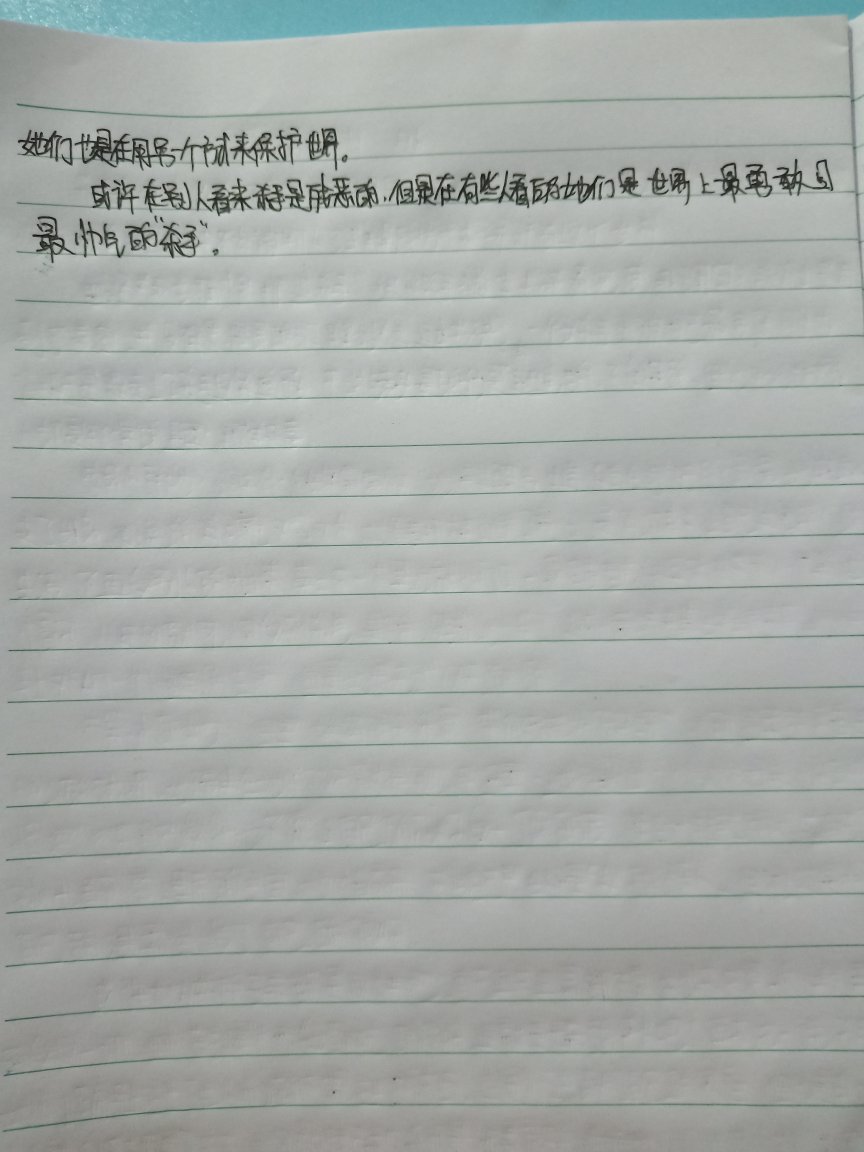 她们也是在用另一个方式来保护世界。
或许在别人看来杀手是残恶的,但是在有些人看的她们是世界上最勇敢且
最帅气的“杀手”。